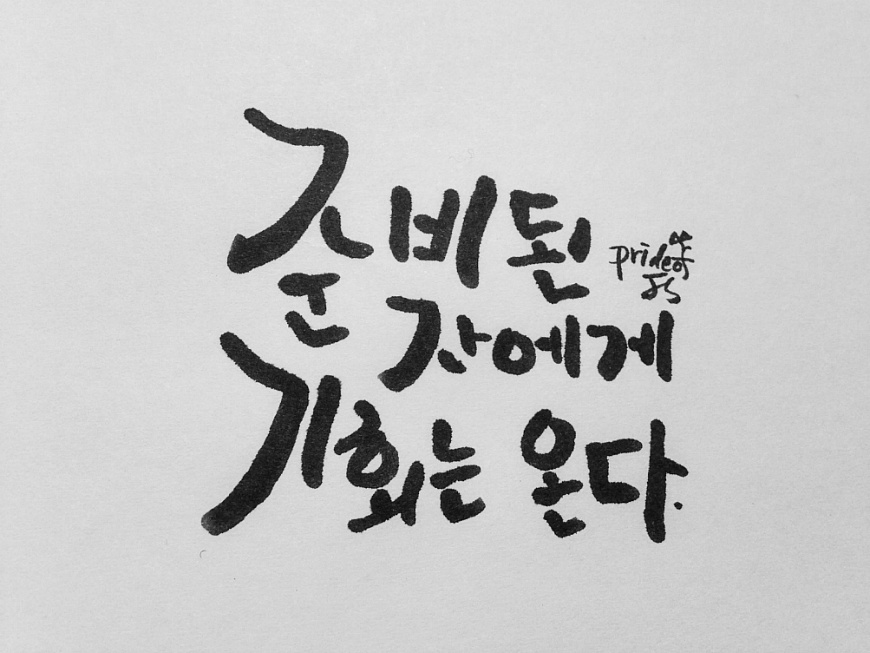 준비된
pride of
JS
자에게
기회는 온다.